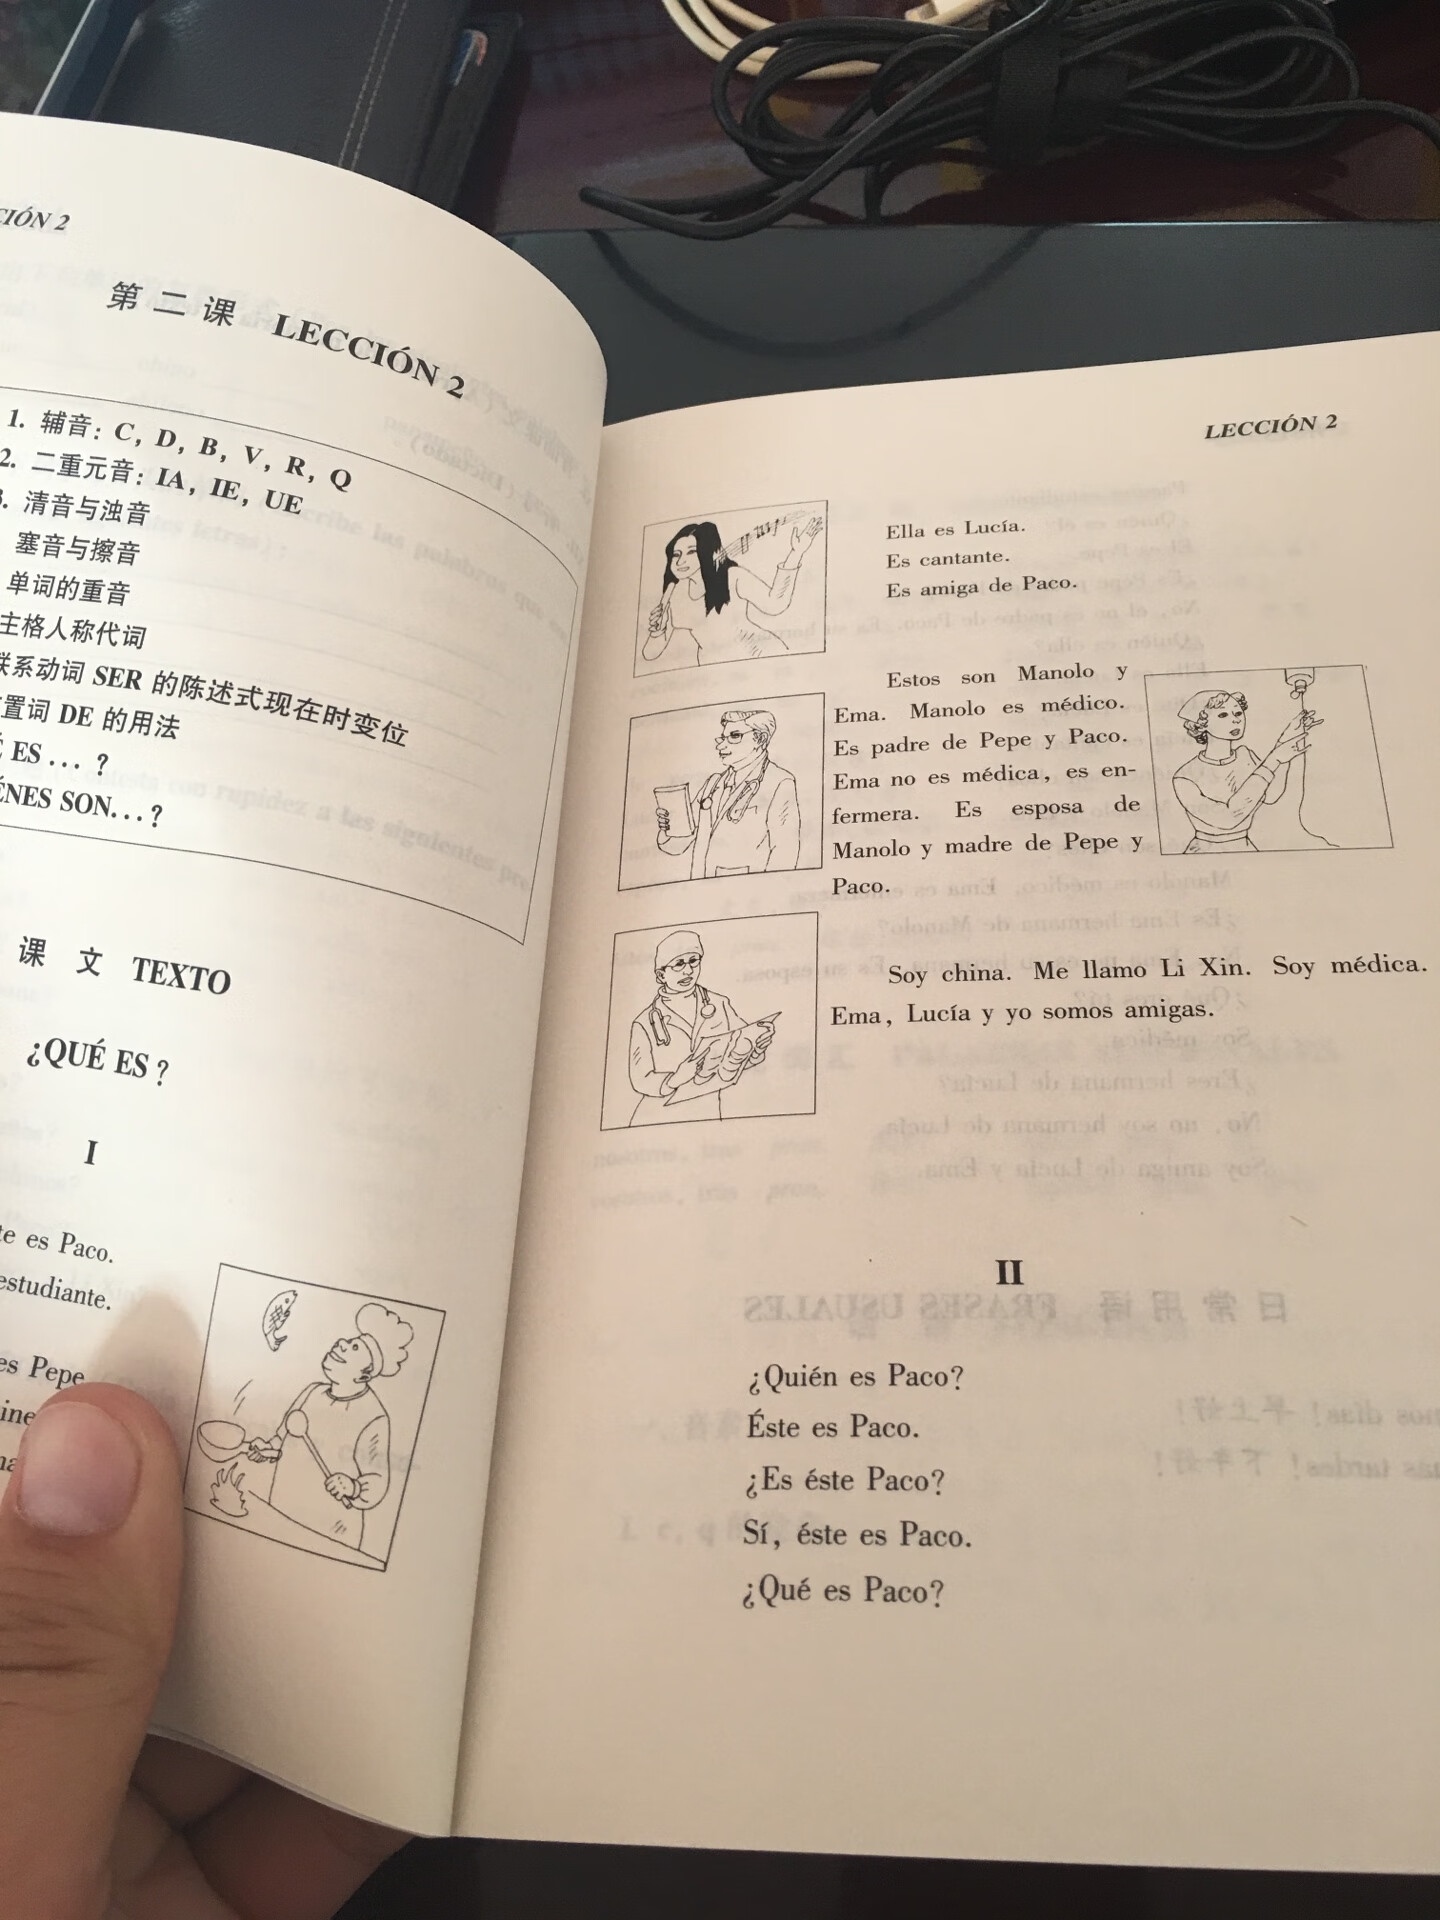 CIÓN 2
第二课 LECCIÓN 2
1. 辅音：C，D，B，V，R，Q
2. 二重元音：IA，IE，UE
3. 清音与浊音
塞音与擦音
单词的重音
主格人称代词
联系动词 SER 的陈述式现在时变位
置词 DE 的用法
É ES...？
ÉNES SON...？
课文 TEXTO
¿QUÉ ES？
I
te es Paco.
estudiante.
es Pepe
ine
na
LECCIÓN 2
Ella es Lucía.
Es cantante.
Es amiga de Paco.
Estos son Manolo y
Ema. Manolo es médico.
Es padre de Pepe y Paco.
Ema no es médica, es en-
fermera. Es esposa de
Manolo y madre de Pepe y
Paco.
Soy china. Me llamo Li Xin. Soy médica.
Ema, Lucía y yo somos amigas.
II
¿Quién es Paco?
Éste es Paco.
¿Es éste Paco?
Sí, éste es Paco.
¿Qué es Paco?